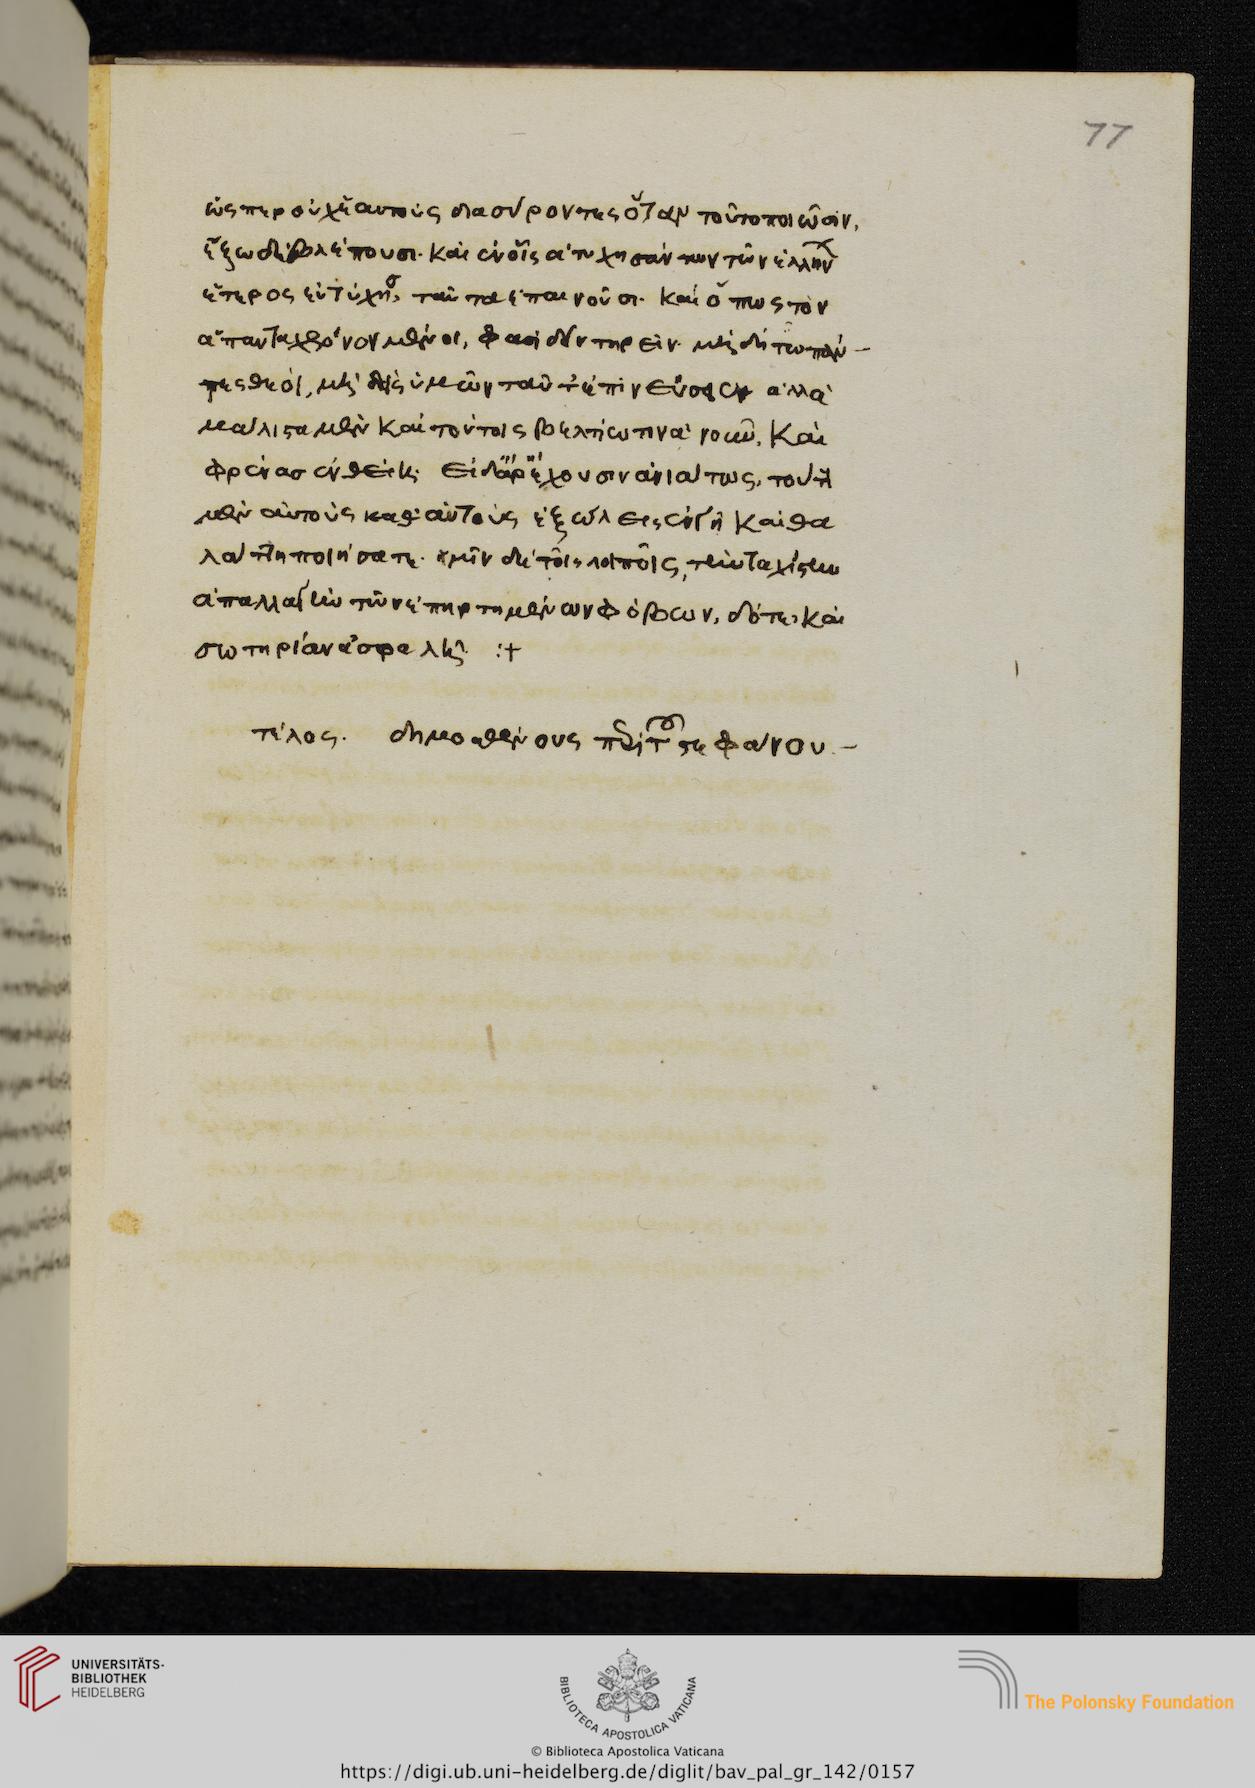 77
ὥσπερ οὐχ αὑτοὺς διασύροντες ὅταν τοῦτο ποιῶσιν,
ἔξω δὲ βλέπουσι· καὶ ἐν οἷς ἀτυχησάντων τῶν ἑλλήνων
ἕτερος εὐτύχησε, ταῦτα ἐπαινοῦσι· καὶ ὅπως τὸν
ἅπαντα χρόνον μένοι, φασὶ δεῖν τηρεῖν· μὴ δῆτ' ὦ πάν –
τες θεοί, μηδεὶς ὑμῶν ταῦτ' ἐπινεύσειεν ἀλλὰ
μάλιστα μὲν καὶ τούτοις βελτίω τινὰ νοῦν, καὶ
φρένας ἐνθείητε· εἰ δ' ἄρ' ἔχουσιν ἀνιάτως, τούτους
μὲν αὐτοὺς καθ' αὑτοὺς ἐξώλεις ἐν γῆ καὶ θα
λάττη ποιήσατε· ἡμῖν δὲ τοῖς λοιποῖς, τὴν ταχίστην
ἀπαλλαγὴν τῶν ἐπηρτημένων φόβων, δότε· καὶ
σωτηρίαν ἀσφαλῆ :+
τέλος. δημοσθένους περὶ τοῦ στεφάνου –
UNIVERSITÄTS-
BIBLIOTHEK
HEIDELBERG
BIBLIOTECA APOSTOLICA VATICANA
The Polonsky Foundation
© Biblioteca Apostolica Vaticana
https://digi.ub.uni-heidelberg.de/diglit/bav_pal_gr_142/0157